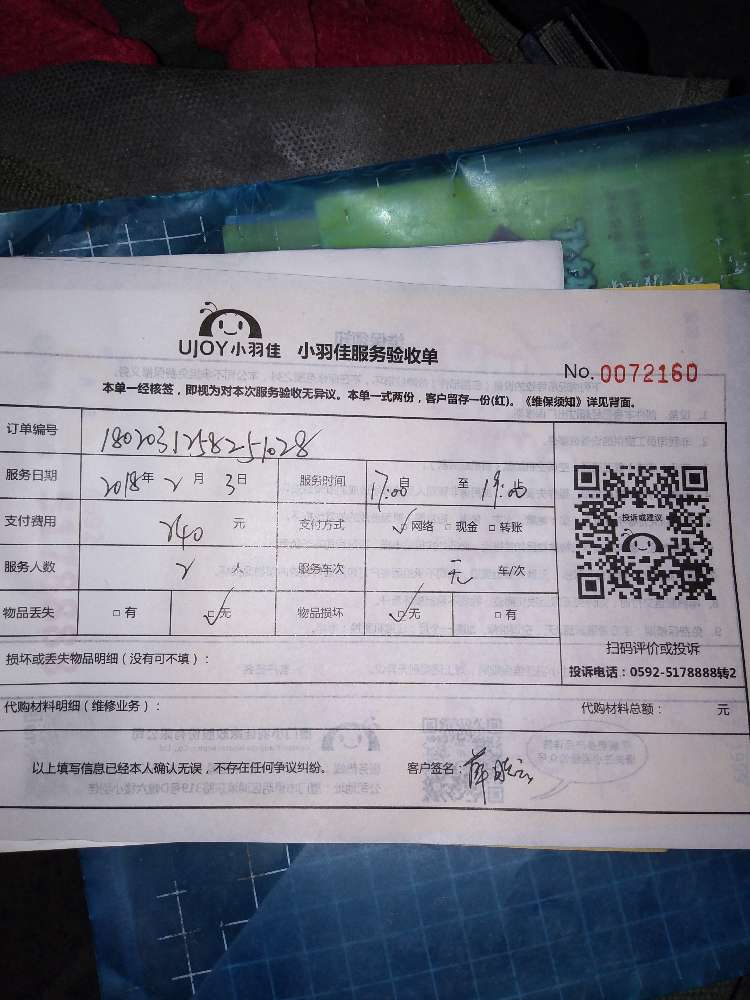 UJOY小羽佳 小羽佳服务验收单
No. 0072160
本单一经核签，即视为对本次服务验收无异议。本单一式两份，客户留存一份(红)。《维保须知》详见背面。
订单编号 1802031258251028
服务日期 2018年 2月 3日 服务时间 17:00 自 至 19:00 止
支付费用 240 元 支付方式 □网络 □现金 □转账
服务人数 2 人 服务车次 无 车/次
物品丢失 □有 □无 物品损坏 □无 □有
投诉或建议
扫码评价或投诉
投诉电话：0592-5178888转2
损坏或丢失物品明细（没有可不填）：
代购材料明细（维修业务）： 代购材料总额： 元
以上填写信息已经本人确认无误，不存在任何争议纠纷。 客户签名：薛